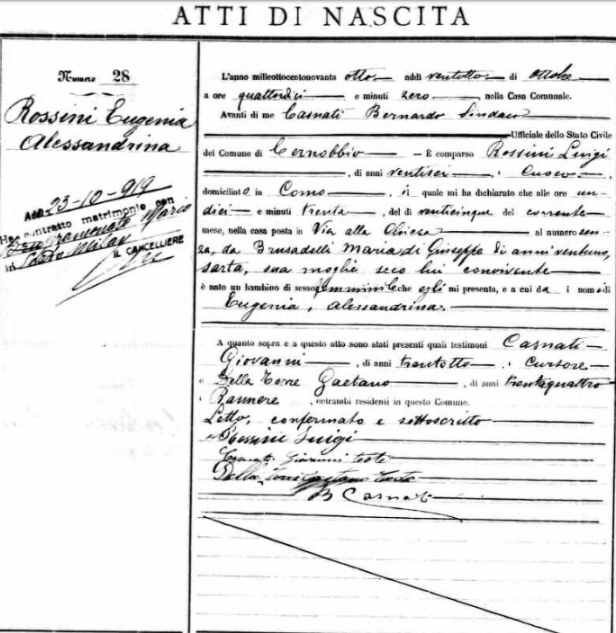 ATTI DI NASCITA
Numero 28
Rossini Eugenia
Alessandrina
Addì 23-10-919
Ha contratto matrimonio con
Mario
in Milano
IL CANCELLIERE
L'anno milleottocentonovanta otto addì ventotto di Ottobre
a ore quattordici e minuti zero, nella Casa Comunale.
Avanti di me Casnati Bernardo Sindaco
Ufficiale dello Stato Civile
del Comune di Cernobbio È comparso Rossini Luigi
, di anni ventisei, Cuoco
domiciliato in Como, il quale mi ha dichiarato che alle ore un-
dici e minuti trenta, del dì venticinque del corrente
mese, nella casa posta in Via alla Chiesa al numero sen-
za, da Brusadelli Maria di Giuseppe di anni ventuno,
sarta, sua moglie seco lui convivente
è nato un bambino di sesso femminile che egli mi presenta, e a cui da i nomi di
Eugenia, Alessandrina.
A quanto sopra e a questo atto sono stati presenti quali testimoni Casnati
Giovanni, di anni trentotto, Cursore
e Della Torre Gaetano, di anni trentaquattro
, entrambi residenti in questo Comune.
Letto, confermato e sottoscritto
Rossini Luigi
Casnati Giovanni teste
Della Torre Gaetano teste
B Casnati